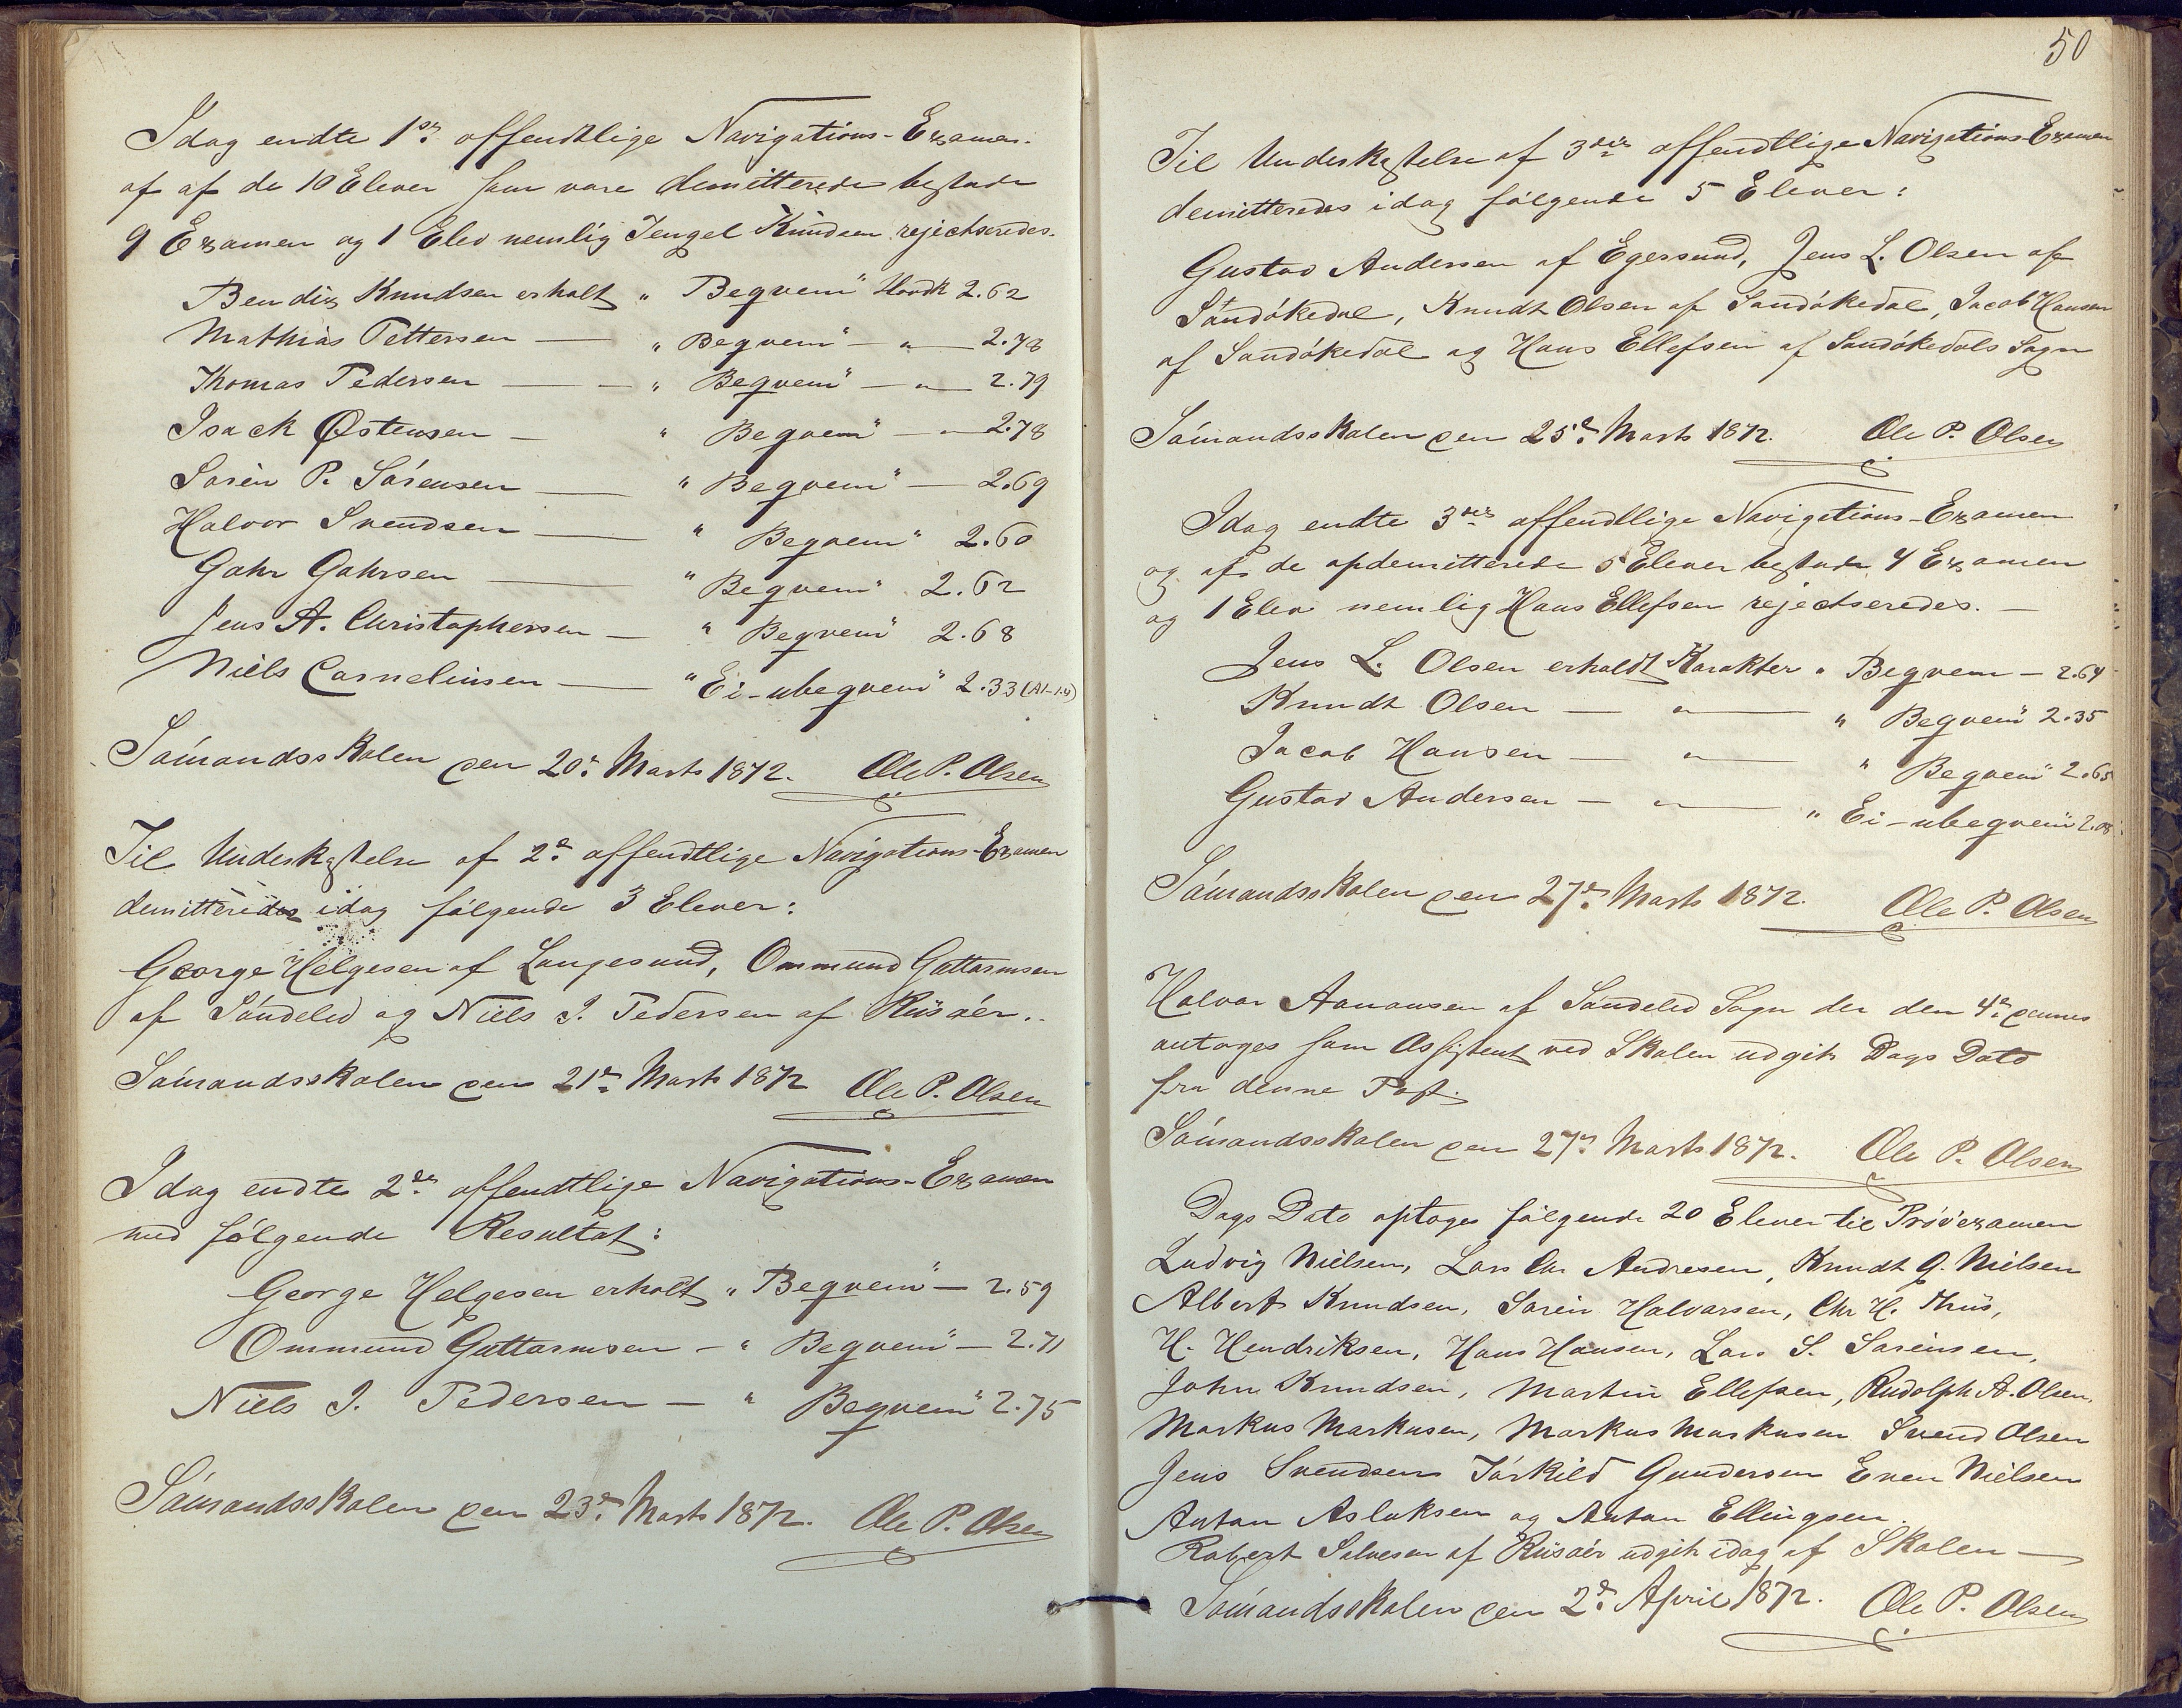 Idag endte 1ste offendtlige Navigations-Examen.
af af de 10 Elever som vare demitterede bestode
9 Examen og 1 Elev nemlig Tengel Knudsen rejectseredes.
Bendix Knudsen erholt „Begvem" Hovdk 2.62
Mathias Pettersen — „Begvem" — „ — 2.78
Thomas Pedersen — — „Begvem" — „ — 2.79
Isack Østensen — „Begvem" „ 2.78
Sørèn P. Sörensen — „Begvem" — 2.69
Halvor Svendsen — „Begvem" 2.60
Gahr Gahrsen — „Begvem" 2.62
Jens A. Christophersen — „Begvem" 2.68
Niels Cornelinsen — „Ei-ubegvem" 2.33 (A1-1.4)
Sömandsskolen den 20e Marts 1872. Ole P. Olsen
Til Underkastelse af 2e offendtlige Navigations-Examen
demitteredes idag følgende 3 Elever:
George Helgesen af Langesund, Ommund Guttormsen
af Söndeled og Niels J. Pedersen af Riisöer.
Sömandsskolen den 21e Marts 1872 Ole P. Olsen
Idag endte 2den offendtlige Navigations-Examen
med følgende Resultat:
George Helgesen erholt „Begvem" — 2.59
Ommund Guttormsen — „Begvem" — 2.71
Niels J. Pedersen — „Begvem" 2.75
Sömandsskolen den 23e Marts 1872. Ole P. Olsen
50
Til Underkastelse af 3die offendtlige Navigations-Examen
demitteredes idag følgende 5 Elever:
Gustav Andersen af Egersund, Jens L. Olsen af
Sandökedal, Knudt Olsen af Sandökedal, Jacob Hansen
af Sandökedal og Hans Ellefsen af Sandökedals Sogn
Sömandsskolen den 25e Marts 1872. Ole P. Olsen
Idag endte 3die offendtlige Navigations-Examen
og af de opdemitterede 5 Elever bestode 4 Examen
og 1 Elev nemlig Hans Ellefsen rejectseredes. —
Jens L. Olsen erholdt Karakter „Begvem — 2.64
Knudt Olsen — „ — „Begvem" 2.35
Jacob Hansen — „ — „Begvem" 2.65
Gustav Andersen — „ — „Ei-ubegvem" 2.08
Sömandsskolen den 27e Marts 1872. Ole P. Olsen
Halvor Aanonsen af Söndeled Sogn der den 4e dennes
antoges som Assistent ved Skolen udgik Dags Dato
fra denne Post.
Sömandsskolen den 27e Marts 1872. Ole P. Olsen
Dags Dato optoges følgende 20 Elever til Prövexamen
Ludvig Nielsen, Lars Chr Andresen, Knudt G. Nielsen
Albert Knudsen, Sörèn Halvorsen, Chr H. Thiis,
H. Hendriksen, Hans Hansen, Lars S. Sörensen,
John Knudsen, Martin Ellefsen, Rudolph A. Olsen,
Markus Markusen, Markus Markusen Svend Olsen
Jens Svendsen Törkild Gundersen Even Nielsen
Anton Aslaksen og Anton Ellingsen.
Robert Salvesen af Riisöer udgik idag af Skolen —
Sömandsskolen den 2e April 1872. Ole P. Olsen